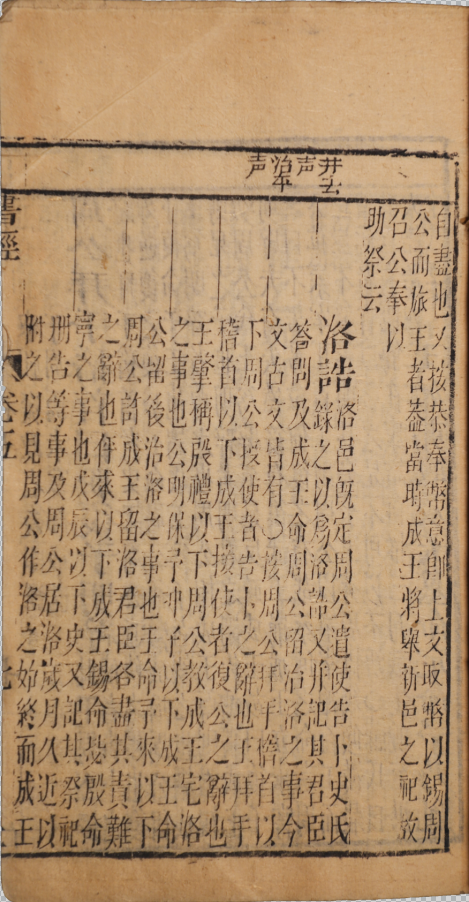 并去
声
治平
声
自盡也又按恭奉幣意卽上文取幣以錫周
公而旅王者葢當時成王將舉新邑之祀故
召公奉以
助祭云
洛誥
洛邑旣定周公遣使告卜史氏
錄之以爲洛誥又并記其君臣
答問及成王命周公留治洛之事今
文古文皆有○按周公拜手稽首以
下周公授使者告卜之辭也王拜手
稽首以下成王授使者復公之辭也
王肇稱殷禮以下周公教成王宅洛
之事也公明保予冲子以下成王命
公留後治洛之事也王命予來以下
周公許成王留洛君臣各盡其責難
之辭也伻來以下成王錫命毖殷命
寧之事也戊辰以下史又記其祭祀
册告等事及周公居洛歲月久近以
附之以見周公作洛之始終而成王
書經
卷五